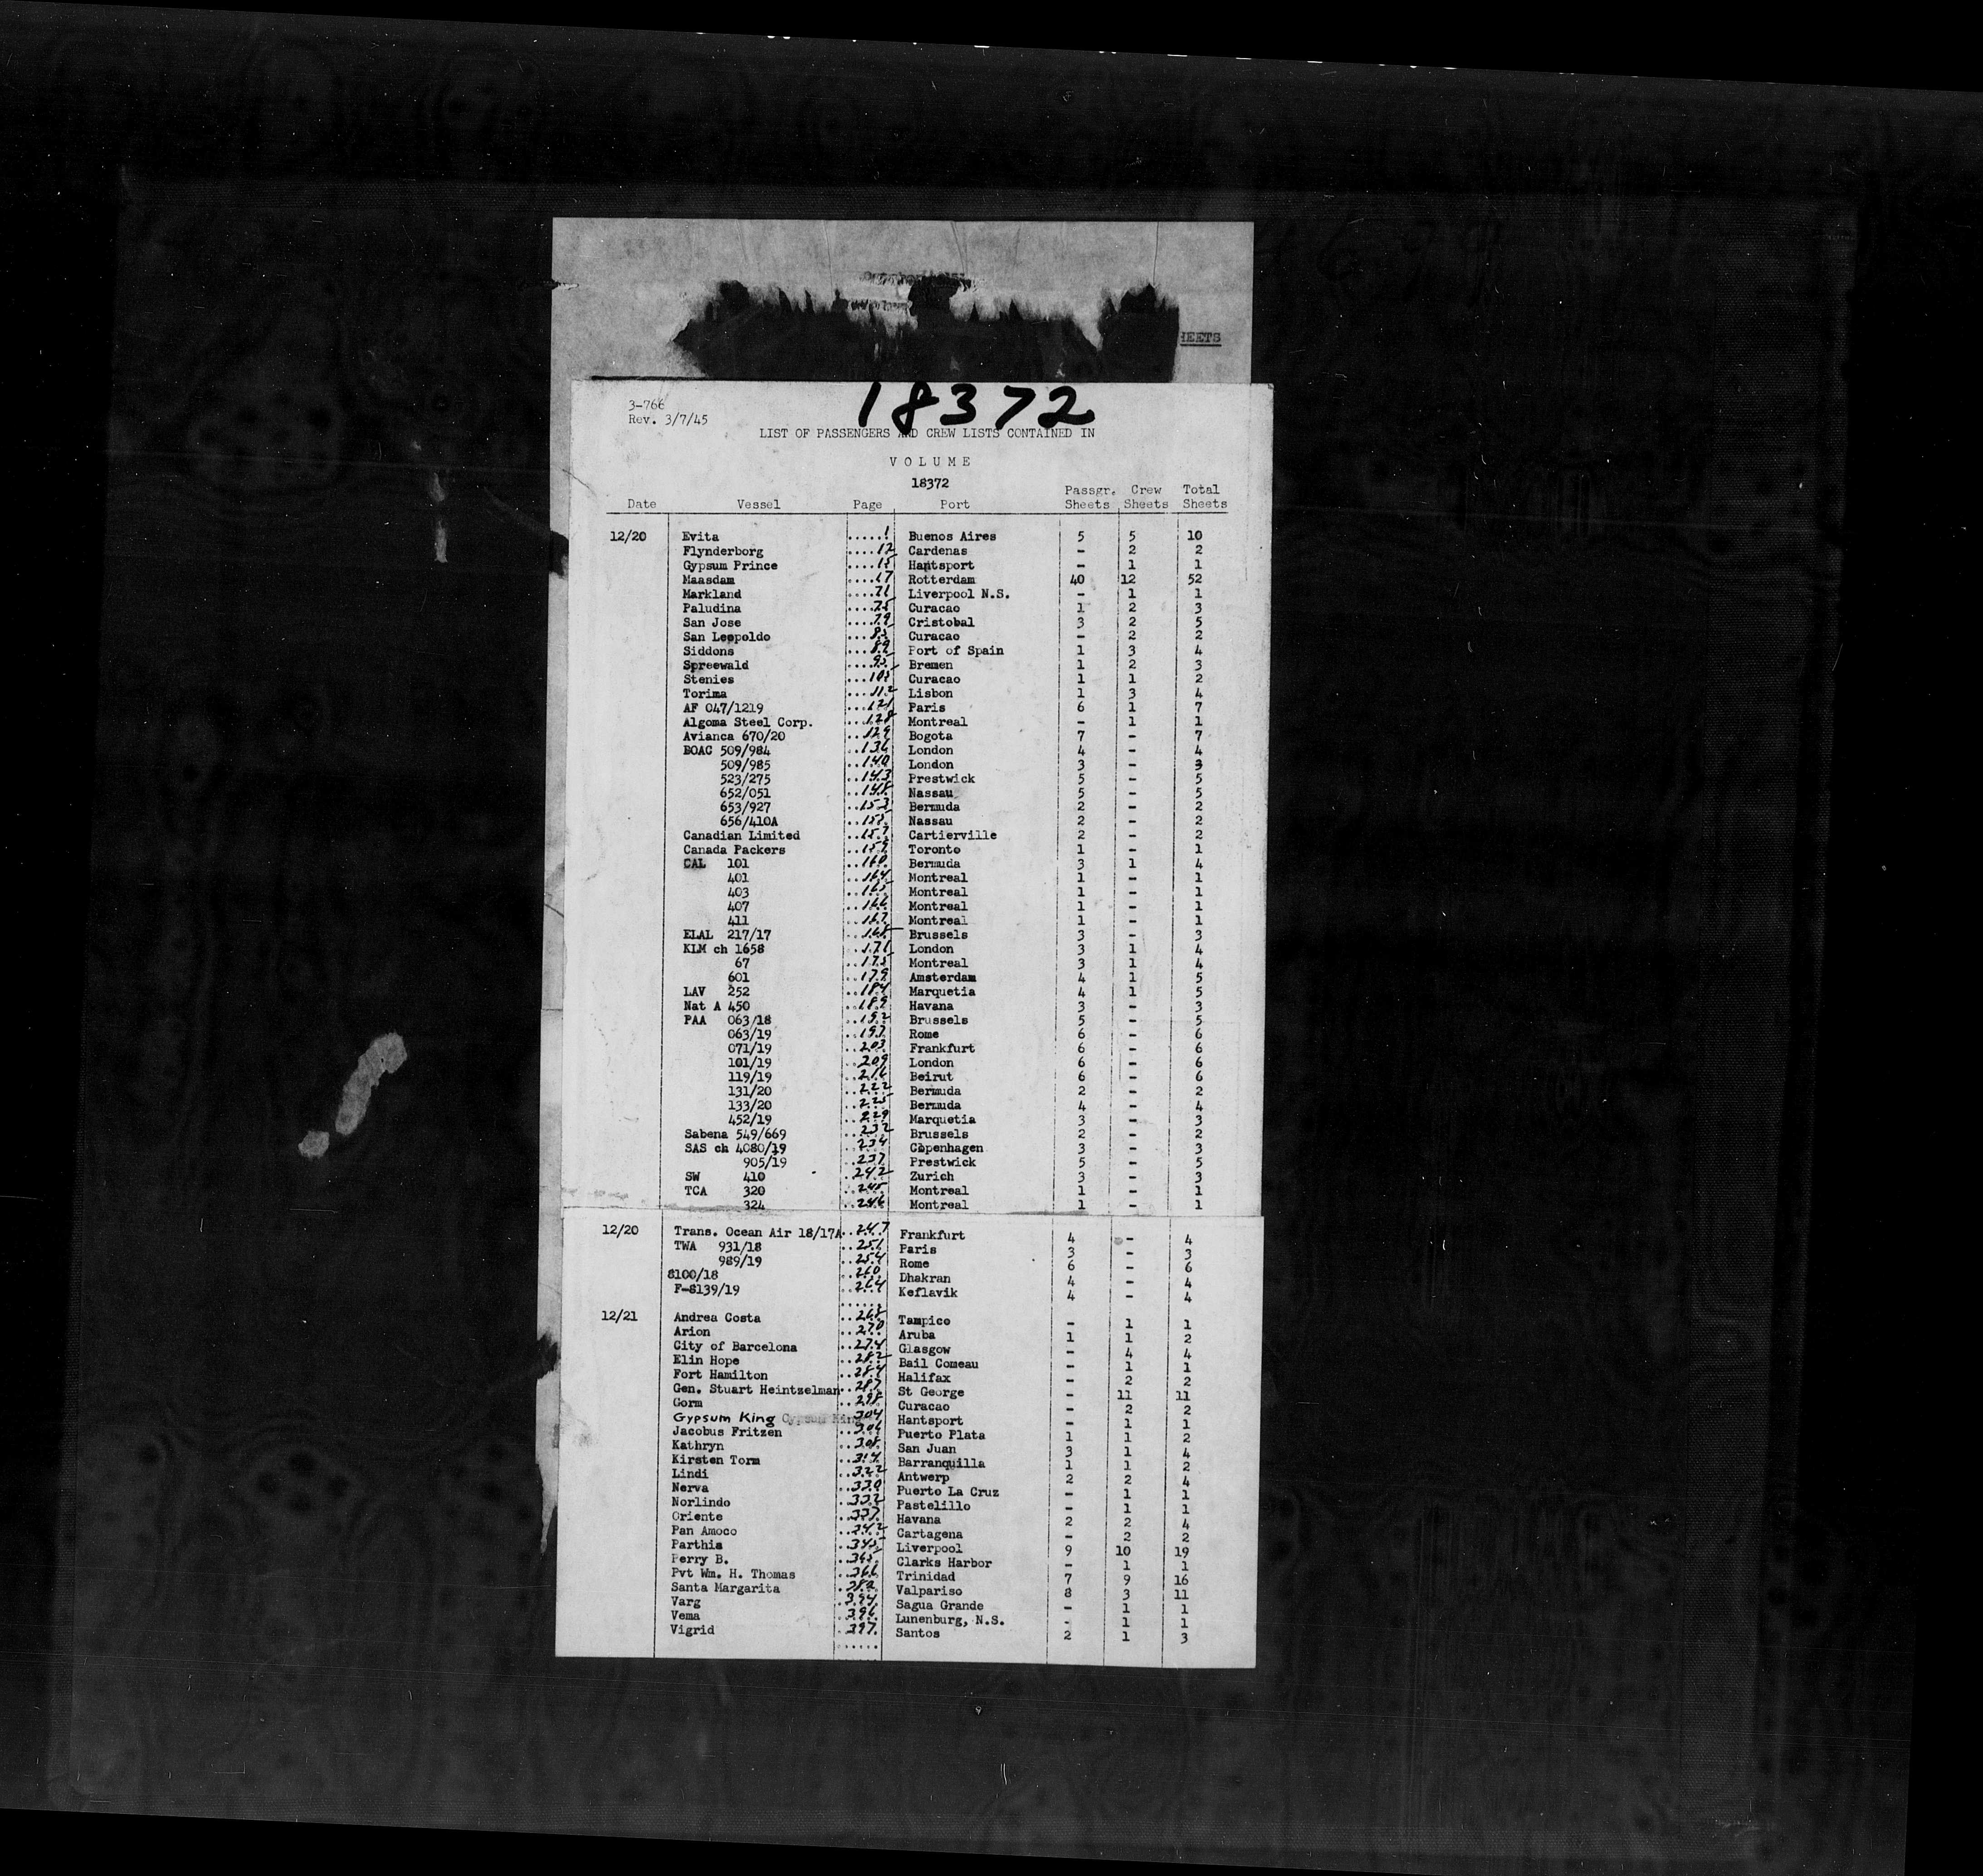 HEETS
18372
3-766
Rev. 3/7/45
LIST OF PASSENGERS AND CREW LISTS CONTAINED IN
VOLUME
18372
Date Vessel Page Port Passgr. Sheets Crew Sheets Total Sheets
12/20 Evita .....1 Buenos Aires 5 5 10
Flynderborg ....12 Cardenas - 2 2
Gypsum Prince ....15 Hantsport - 1 1
Maasdam ....17 Rotterdam 40 12 52
Markland ....71 Liverpool N.S. - 1 1
Paludina ....75 Curacao 1 2 3
San Jose ....79 Cristobal 3 2 5
San Leopoldo ....85 Curacao - 2 2
Siddons ....89 Port of Spain 1 3 4
Spreewald ....95 Bremen 1 2 3
Stenies ...105 Curacao 1 1 2
Torima ...112 Lisbon 1 3 4
AF 047/1219 ...121 Paris 6 1 7
Algoma Steel Corp. ...128 Montreal - 1 1
Avianca 670/20 ..129 Bogota 7 - 7
BOAC 509/984 ..136 London 4 - 4
509/985 ..140 London 3 - 3
523/275 ..143 Prestwick 5 - 5
652/051 ..148 Nassau 5 - 5
653/927 ..153 Bermuda 2 - 2
656/410A ..155 Nassau 2 - 2
Canadian Limited ..157 Cartierville 2 - 2
Canada Packers ..159 Toronto 1 - 1
CAL 101 ..160 Bermuda 3 1 4
401 ..164 Montreal 1 - 1
403 ..165 Montreal 1 - 1
407 ..166 Montreal 1 - 1
411 ..167 Montreal 1 - 1
ELAL 217/17 ..168 Brussels 3 - 3
KLM ch 1658 ..171 London 3 1 4
67 ..175 Montreal 3 1 4
601 ..179 Amsterdam 4 1 5
LAV 252 ..184 Marquetia 4 1 5
Nat A 450 ..189 Havana 3 - 3
PAA 063/18 ..192 Brussels 5 - 5
063/19 ..197 Rome 6 - 6
071/19 ..203 Frankfurt 6 - 6
101/19 ..209 London 6 - 6
119/19 ..216 Beirut 6 - 6
131/20 ..222 Bermuda 2 - 2
133/20 ..225 Bermuda 4 - 4
452/19 ..229 Marquetia 3 - 3
Sabena 549/669 ..232 Brussels 2 - 2
SAS ch 4080/19 ..234 Copenhagen 3 - 3
905/19 ..237 Prestwick 5 - 5
SW 410 ..242 Zurich 3 - 3
TCA 320 ..245 Montreal 1 - 1
324 ..246 Montreal 1 - 1
12/20 Trans. Ocean Air 18/17A ..247 Frankfurt 4 - 4
TWA 931/18 ..251 Paris 3 - 3
989/19 ..254 Rome 6 - 6
8100/18 ..260 Dhakran 4 - 4
F-8139/19 ..264 Keflavik 4 - 4
12/21 Andrea Costa ..268 Tampico - 1 1
Arion ..270 Aruba 1 1 2
City of Barcelona ..274 Glasgow - 4 4
Elin Hope ..282 Bail Comeau - 1 1
Fort Hamilton ..284 Halifax - 2 2
Gen. Stuart Heintzelman ..287 St George - 11 11
Gorm ..298 Curacao - 2 2
Gypsum King Gypsum King 304 Hantsport - 1 1
Jacobus Fritzen ..306 Puerto Plata 1 1 2
Kathryn ..308 San Juan 3 1 4
Kirsten Torm ..314 Barranquilla 1 1 2
Lindi ..322 Antwerp 2 2 4
Nerva ..330 Puerto La Cruz - 1 1
Norlindo ..332 Pastelillo - 1 1
Oriente ..337 Havana 2 2 4
Pan Amoco ..342 Cartagena - 2 2
Parthia ..345 Liverpool 9 10 19
Perry B. ..365 Clarks Harbor - 1 1
Pvt Wm. H. Thomas ..366 Trinidad 7 9 16
Santa Margarita ..382 Valpariso 8 3 11
Varg ..394 Sagua Grande - 1 1
Vema ..396 Lunenburg, N.S. - 1 1
Vigrid ..397 Santos 2 1 3